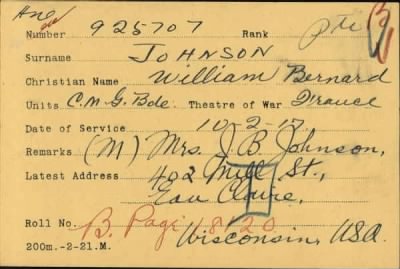 Number 925707 Rank Pte
Surname JOHNSON
Christian Name William Bernard
Units C.M.G. Bde. Theatre of War France
Date of Service 10-2-17
Remarks (M) Mrs. J. B. Johnson,
Latest Address 402 Mill St.,
Eau Claire,
Roll No. B. Page 1820
Wisconsin, U.S.A.
200m.-2-21.M.